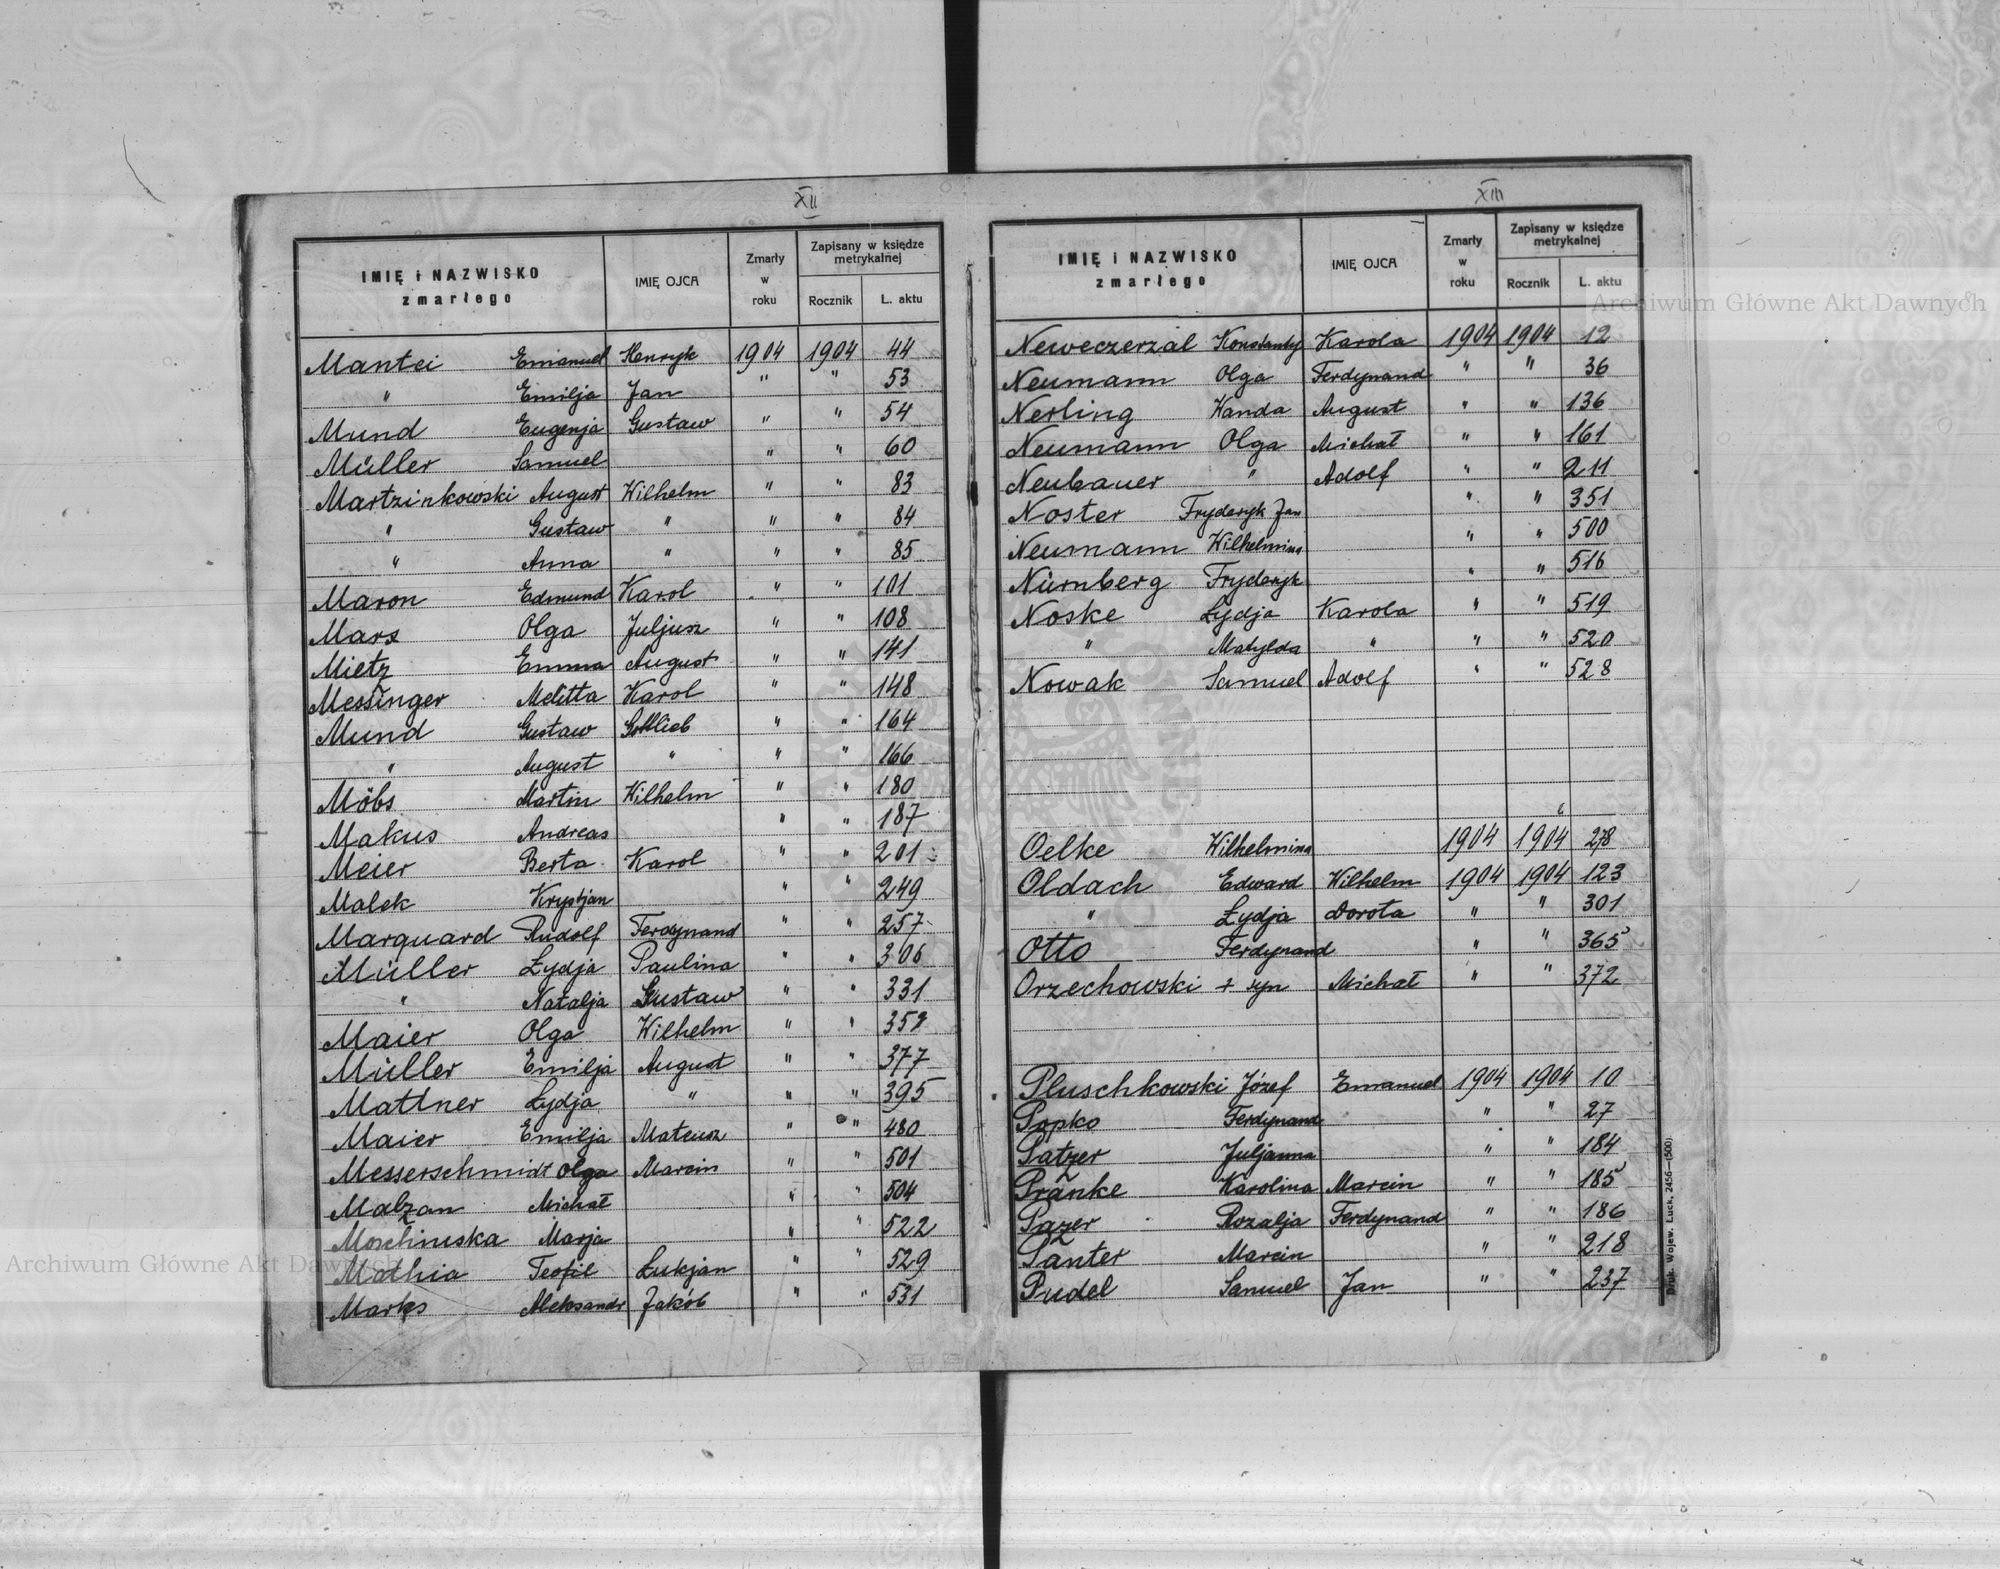 XII
IMIĘ i NAZWISKO zmarłego IMIĘ OJCA Zmarły w roku Zapisany w księdze metrykalnej Rocznik L. aktu
Mantei Emanuel Henryk 1904 1904 44
" Emilja Jan " " 53
Mund Eugenja Gustaw " " 54
Müller Samuel " " 60
Martzinkowski August Wilhelm " " 83
" Gustaw " " " 84
" Anna " " " 85
Maron Edmund Karol " " 101
Mars Olga Juljusz " " 108
Mietz Emma August " " 141
Messinger Melitta Karol " " 148
Mund Gustaw Gottlieb " " 164
" August " " " 166
Möbs Martin Wilhelm " " 180
Makus Andreas " " 187
Meier Berta Karol " " 201
Malek Krystjan " " 249
Marquard Rudolf Ferdynand " " 257
Müller Lydja Paulina " " 306
" Natalja Gustaw " " 331
Maier Olga Wilhelm " " 352
Müller Emilja August " " 377
Mattner Lydja " " " 395
Maier Emilja Mateusz " " 480
Messerschmidt Olga Marcin " " 501
Malzan Michał " " 504
Moschinska Marja " " 522
Mathia Teofil Łukjan " " 529
Marks Aleksandr Jakób " " 531
XIII
IMIĘ i NAZWISKO zmarłego IMIĘ OJCA Zmarły w roku Zapisany w księdze metrykalnej Rocznik L. aktu
Neweczerzal Konstanty Karola 1904 1904 12
Neumann Olga Ferdynand " " 36
Nerling Wanda August " " 136
Neumann Olga Michał " " 161
Neubauer " Adolf " " 211
Noster Fryderyk Jan " " 351
Neumann Wilhelmina " " 500
Nürnberg Fryderyk " " 516
Noske Lydja Karola " " 519
" Matylda " " " 520
Nowak Samuel Adolf " " 528
Oelke Wilhelmina 1904 1904 278
Oldach Edward Wilhelm 1904 1904 123
" Lydja Dorota " " 301
Otto Ferdynand " " 365
Orzechowski + syn Michał " " 372
Pluschkowski Józef Emanuel 1904 1904 10
Popko Ferdynand " " 27
Patzer Juljanna " " 184
Pränke Karolina Marcin " " 185
Pazer Rozalja Ferdynand " " 186
Panter Marcin " " 218
Pudel Samuel Jan " " 237
Druk. Wojew. Łuck. 2456—(500).
Archiwum Główne Akt Dawnych
Archiwum Główne Akt Dawnych